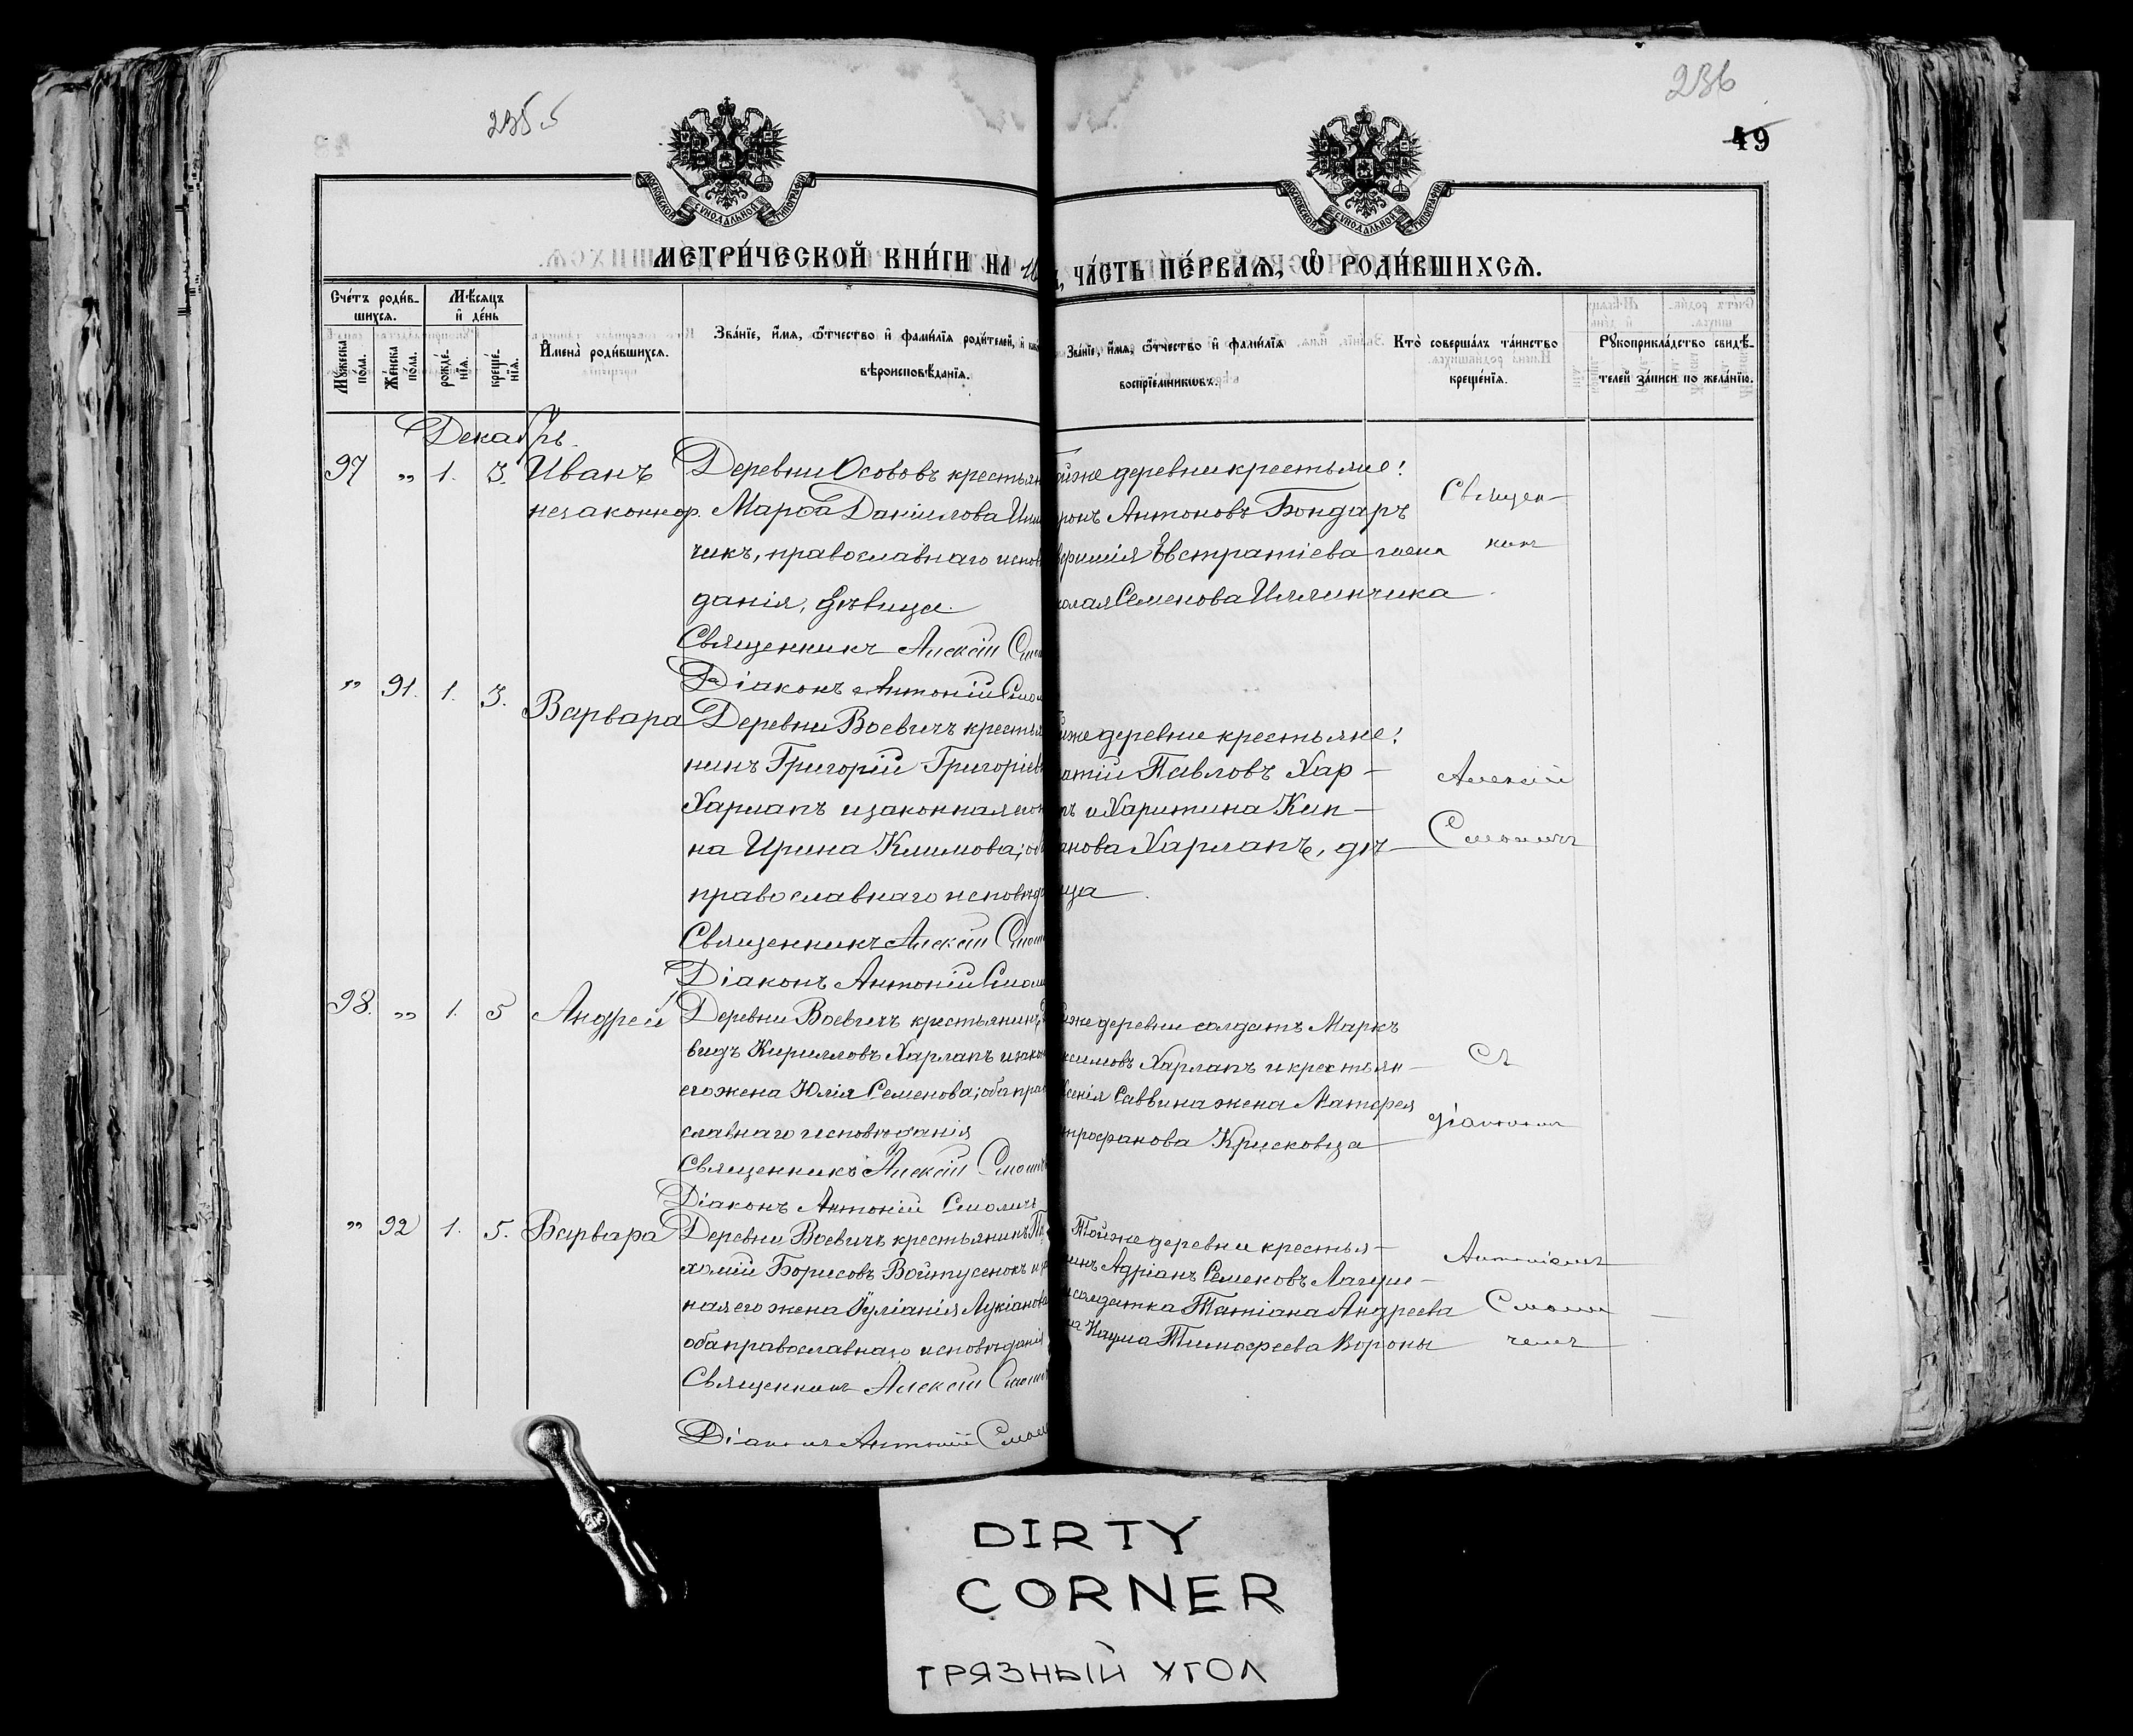 235
236
49
МОСКОВСКОЙ СѴНОДАЛЬНОЙ ТИПОГРАФІИ
МОСКОВСКОЙ СѴНОДАЛЬНОЙ ТИПОГРАФІИ
МЕТРИ́ЧЕСКОЙ КНИ́ГИ НА
ЧА́СТЬ ПЕ́РВАѦ, Ѡ҆ РОДИ́ВШИХСѦ.
Сче́тъ роди́в-
шихсѧ.
Мѣ́сѧцъ
и҆ де́нь
Мꙋ́жеска
по́ла.
Же́нска
по́ла.
рожде́-
нїѧ.
креще́-
нїѧ.
И҆мена̀ роди́вшихсѧ.
Зва́нїе, и҆́мѧ, ѻ҆́тчество и҆ фами́лїѧ роди́телей, и҆
вѣроисповѣ́данїѧ.
Зва́нїе, и҆́мѧ, ѻ҆́тчество и҆ фами́лїѧ
воспрїе́мникѡвъ.
Кто̀ соверша́лъ та́инство
креще́нїѧ.
Рꙋкоприкла́дство свидѣ́-
телей за́писи по жела́нїю.
Декабрь.
97 „ 1. 3. Иванъ
незаконнор.
Деревни Осововъ крестьян
Марѳа Даніилова
чикъ, православнаго испов
данія, дѣвица.
Священникъ Алексій
Діаконъ Антоній
ойже деревни крестьяне:
ронъ Антоновъ Бондаръ
фимія Евстратіева жена
колая Семенова Иллинчика
„ 91. 1. 3. Варвара
Деревни Воевичъ крестья
нинъ Григорій Григоріев
Харлапъ и законная его
на Ирина Климова; об
православнаго исповѣд
Священникъ Алексій
Діаконъ Антоній
йже деревни крестьяне:
атій Павловъ Хар-
ъ и Харитина Кип-
анова Харлапъ, дѣ-
ица
98. „ 1. 5 Андрей
Деревни Воевичъ крестьянинъ
видъ Кирилловъ Харлапъ и закон
его жена Юлія Семенова; оба право
славнаго исповѣданія
Священникъ Алексій Смоличъ
Діаконъ Антоній Смоличъ
йже деревни солдатъ Маркъ
ксимовъ Харлапъ и крестьян-
сенія Саввина жена Матфея
трофанова Крисковца
„ 92 1. 5. Варвара
Деревни Воевичъ крестьянинъ Па
хомій Борисовъ Войтусенокъ и
ная его жена Іуліанія Лукіанова
оба православнаго исповѣданія
Священникъ Алексій
Діаконъ Антоній
Тойже деревни крестья-
нинъ Адріанъ Семеновъ
солдатка Татіана Андреева
Наума Тимофеева Вороны
Священ-
никъ
Алексій
Смоличъ
съ
діакономъ
Антоніемъ
Смоли-
чемъ
DIRTY
CORNER
ГРЯЗНЫЙ УГОЛ